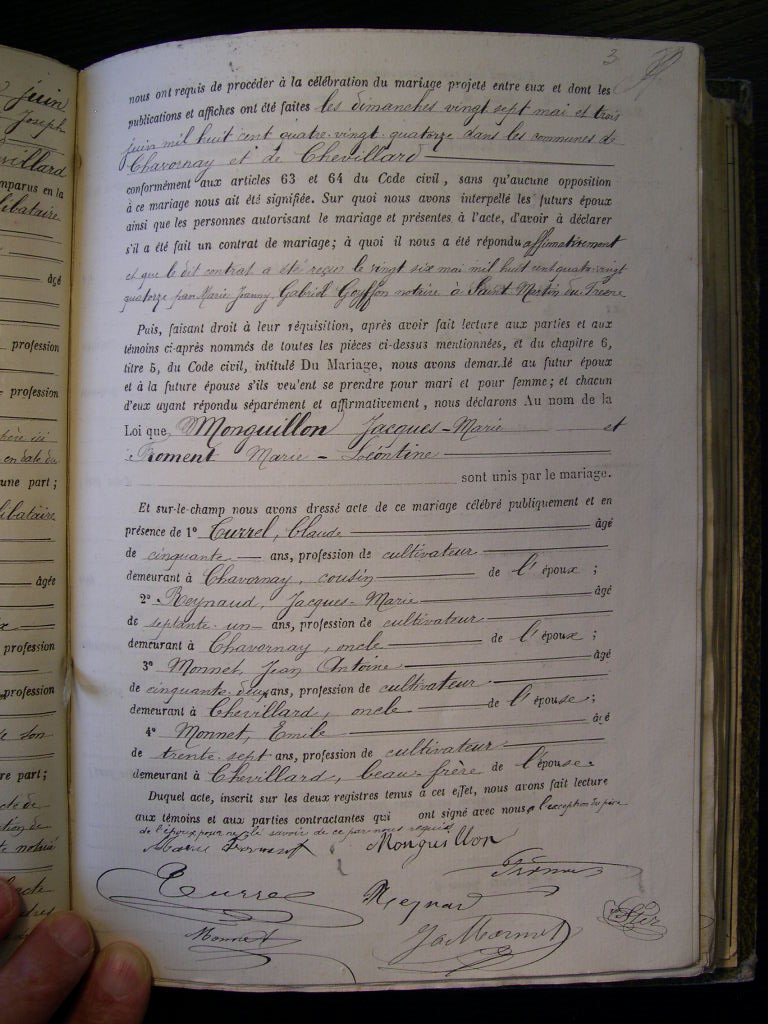 juin
Joseph
villard
mparus en la
libataire
âgé
profession
profession
en date du
une part ;
libataire
âgée
profession
profession
de son
re part;
acte de
te notarié
acte
3
nous ont requis de procéder à la célébration du mariage projeté entre eux et dont les
publications et affiches ont été faites les dimanches vingt sept mai et trois
juin mil huit cent quatre-vingt-quatorze dans les communes de
Chavornay et de Chevillard
conformément aux articles 63 et 64 du Code civil, sans qu'aucune opposition
à ce mariage nous ait été signifiée. Sur quoi nous avons interpellé les futurs époux
ainsi que les personnes autorisant le mariage et présentes à l'acte, d'avoir à déclarer
s'il a été fait un contrat de mariage; à quoi il nous a été répondu affirmativement
et que le dit contrat a été reçu le vingt six mai mil huit cent quatre-vingt
quatorze par Marie Joanny Gabriel Goyffon notaire à Saint-Martin-du-Fresne
Puis, faisant droit à leur réquisition, après avoir fait lecture aux parties et aux
témoins ci-après nommés de toutes les pièces ci-dessus mentionnées, et du chapitre 6,
titre 5, du Code civil, intitulé Du Mariage, nous avons demandé au futur époux
et à la future épouse s'ils veulent se prendre pour mari et pour femme; et chacun
d'eux ayant répondu séparément et affirmativement, nous déclarons Au nom de la
Loi que Monguillon Jacques-Marie et
Froment Marie-Léontine
sont unis par le mariage.
Et sur-le-champ nous avons dressé acte de ce mariage célébré publiquement et en
présence de 1º Currel, Claude âgé
de cinquante ans, profession de cultivateur
demeurant à Chavornay, cousin de l'époux ;
2º Reynaud, Jacques-Marie âgé
de septante-un ans, profession de cultivateur
demeurant à Chavornay, oncle de l'époux ;
3º Monnet, Jean Antoine âgé
de cinquante-deux ans, profession de cultivateur
demeurant à Chevillard, oncle de l'épouse;
4º Monnet, Emile âgé
de trente-sept ans, profession de cultivateur
demeurant à Chevillard, beau-frère de l'épouse.
Duquel acte, inscrit sur les deux registres tenus à cet effet, nous avons fait lecture
aux témoins et aux parties contractantes qui ont signé avec nous à l'exception du père
de l'époux pour ne le savoir de ce par nous requis
Marie Froment Monguillon
Currel Reynaud
Monnet